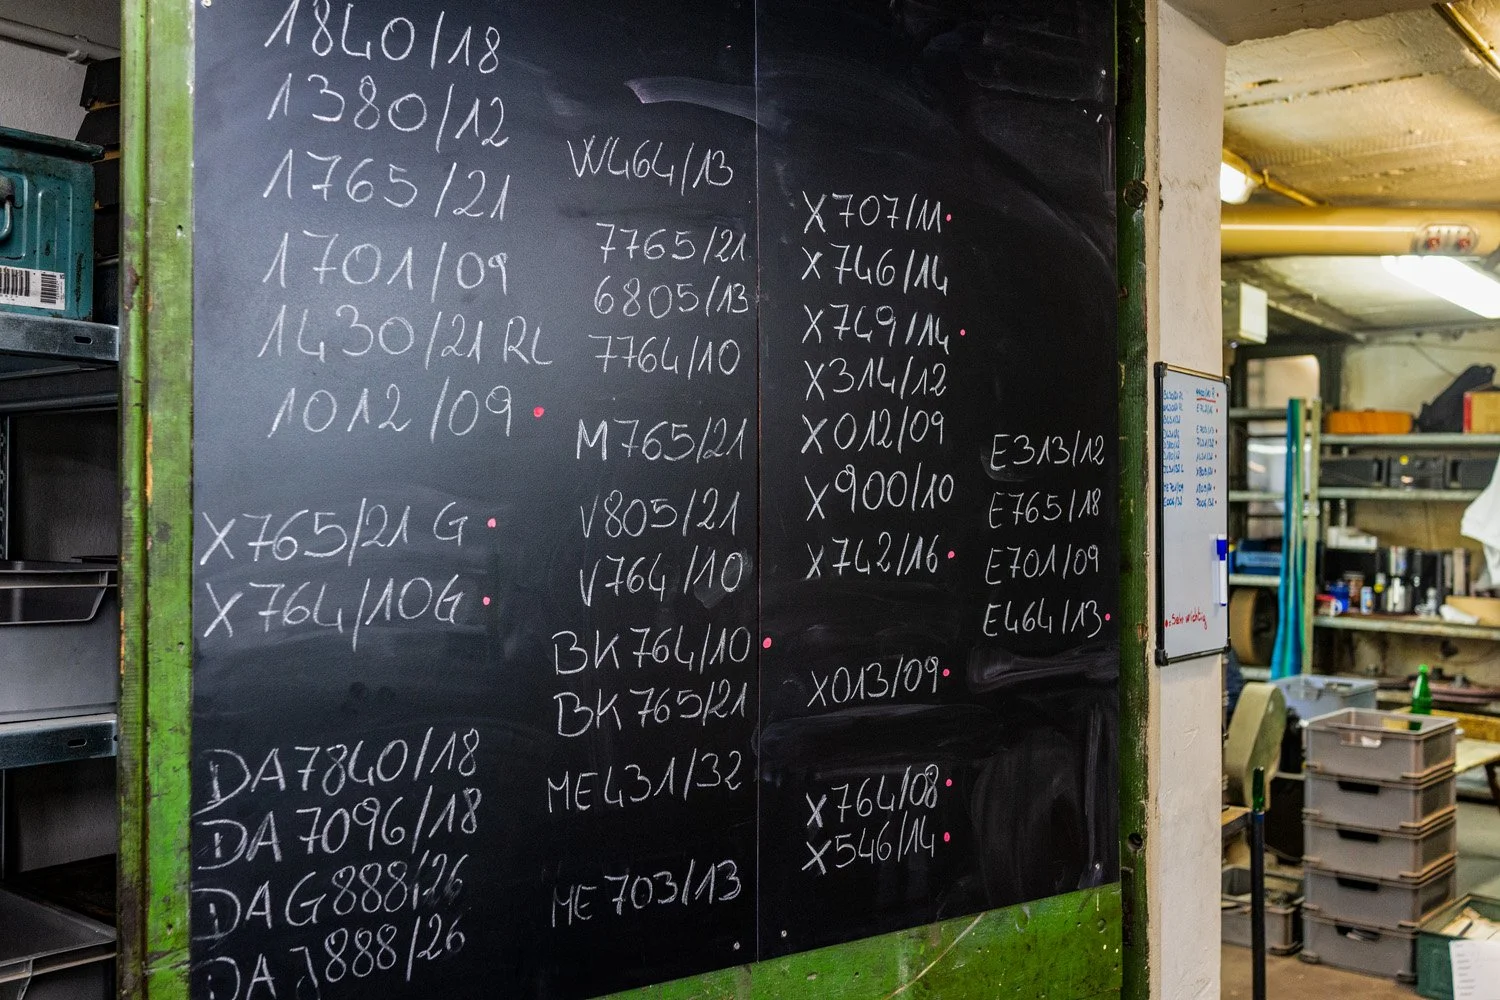 1840/18
1380/12
1765/21
1701/09
1430/21 RL
1012/09
X765/21 G
X764/10G
DA7840/18
DA7096/18
DAG888/26
DAJ888/26
W464/13
7765/21
6805/13
7764/10
M765/21
V805/21
V764/10
BK764/10
BK765/21
ME431/32
ME703/13
X707/11
X746/14
X749/14
X314/12
X012/09
X900/10
X742/16
X013/09
X764/08
X546/14
E313/12
E765/18
E701/09
E464/13
= Sehr wichtig